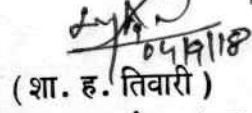 04/9/18
(शा. ह. तिवारी)